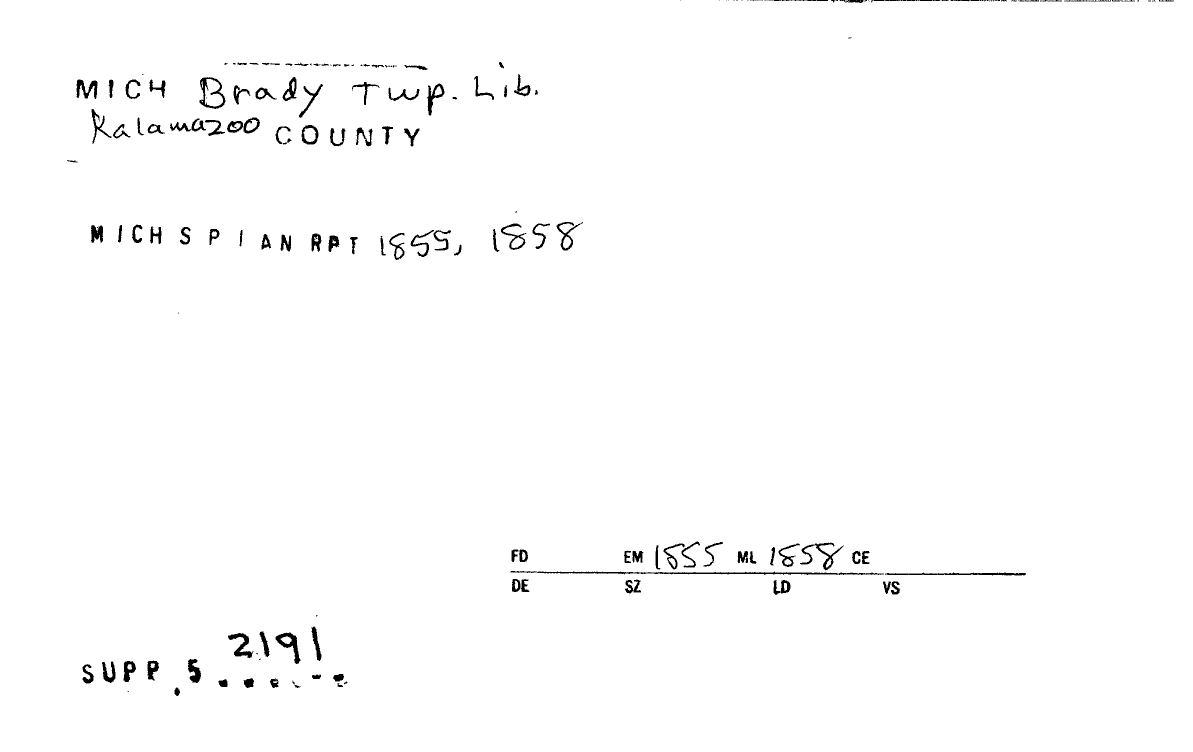 MICH Brady Twp. Lib.
Kalamazoo COUNTY
MICH S P I AN RPT 1855, 1858
FD EM 1855 ML 1858 CE
DE SZ LD VS
2191
SUPP. 5